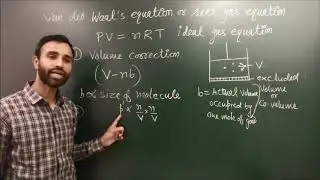 Van der Waal's equation or real gas equation
PV = nRT ideal gas equation
① Volume correction
(V-nb)
b ∝ size of molecule
∝ n/V × n/V
excluded
b = Actual volume
occupied by
one mole of gas
Volume
or
Co-volume